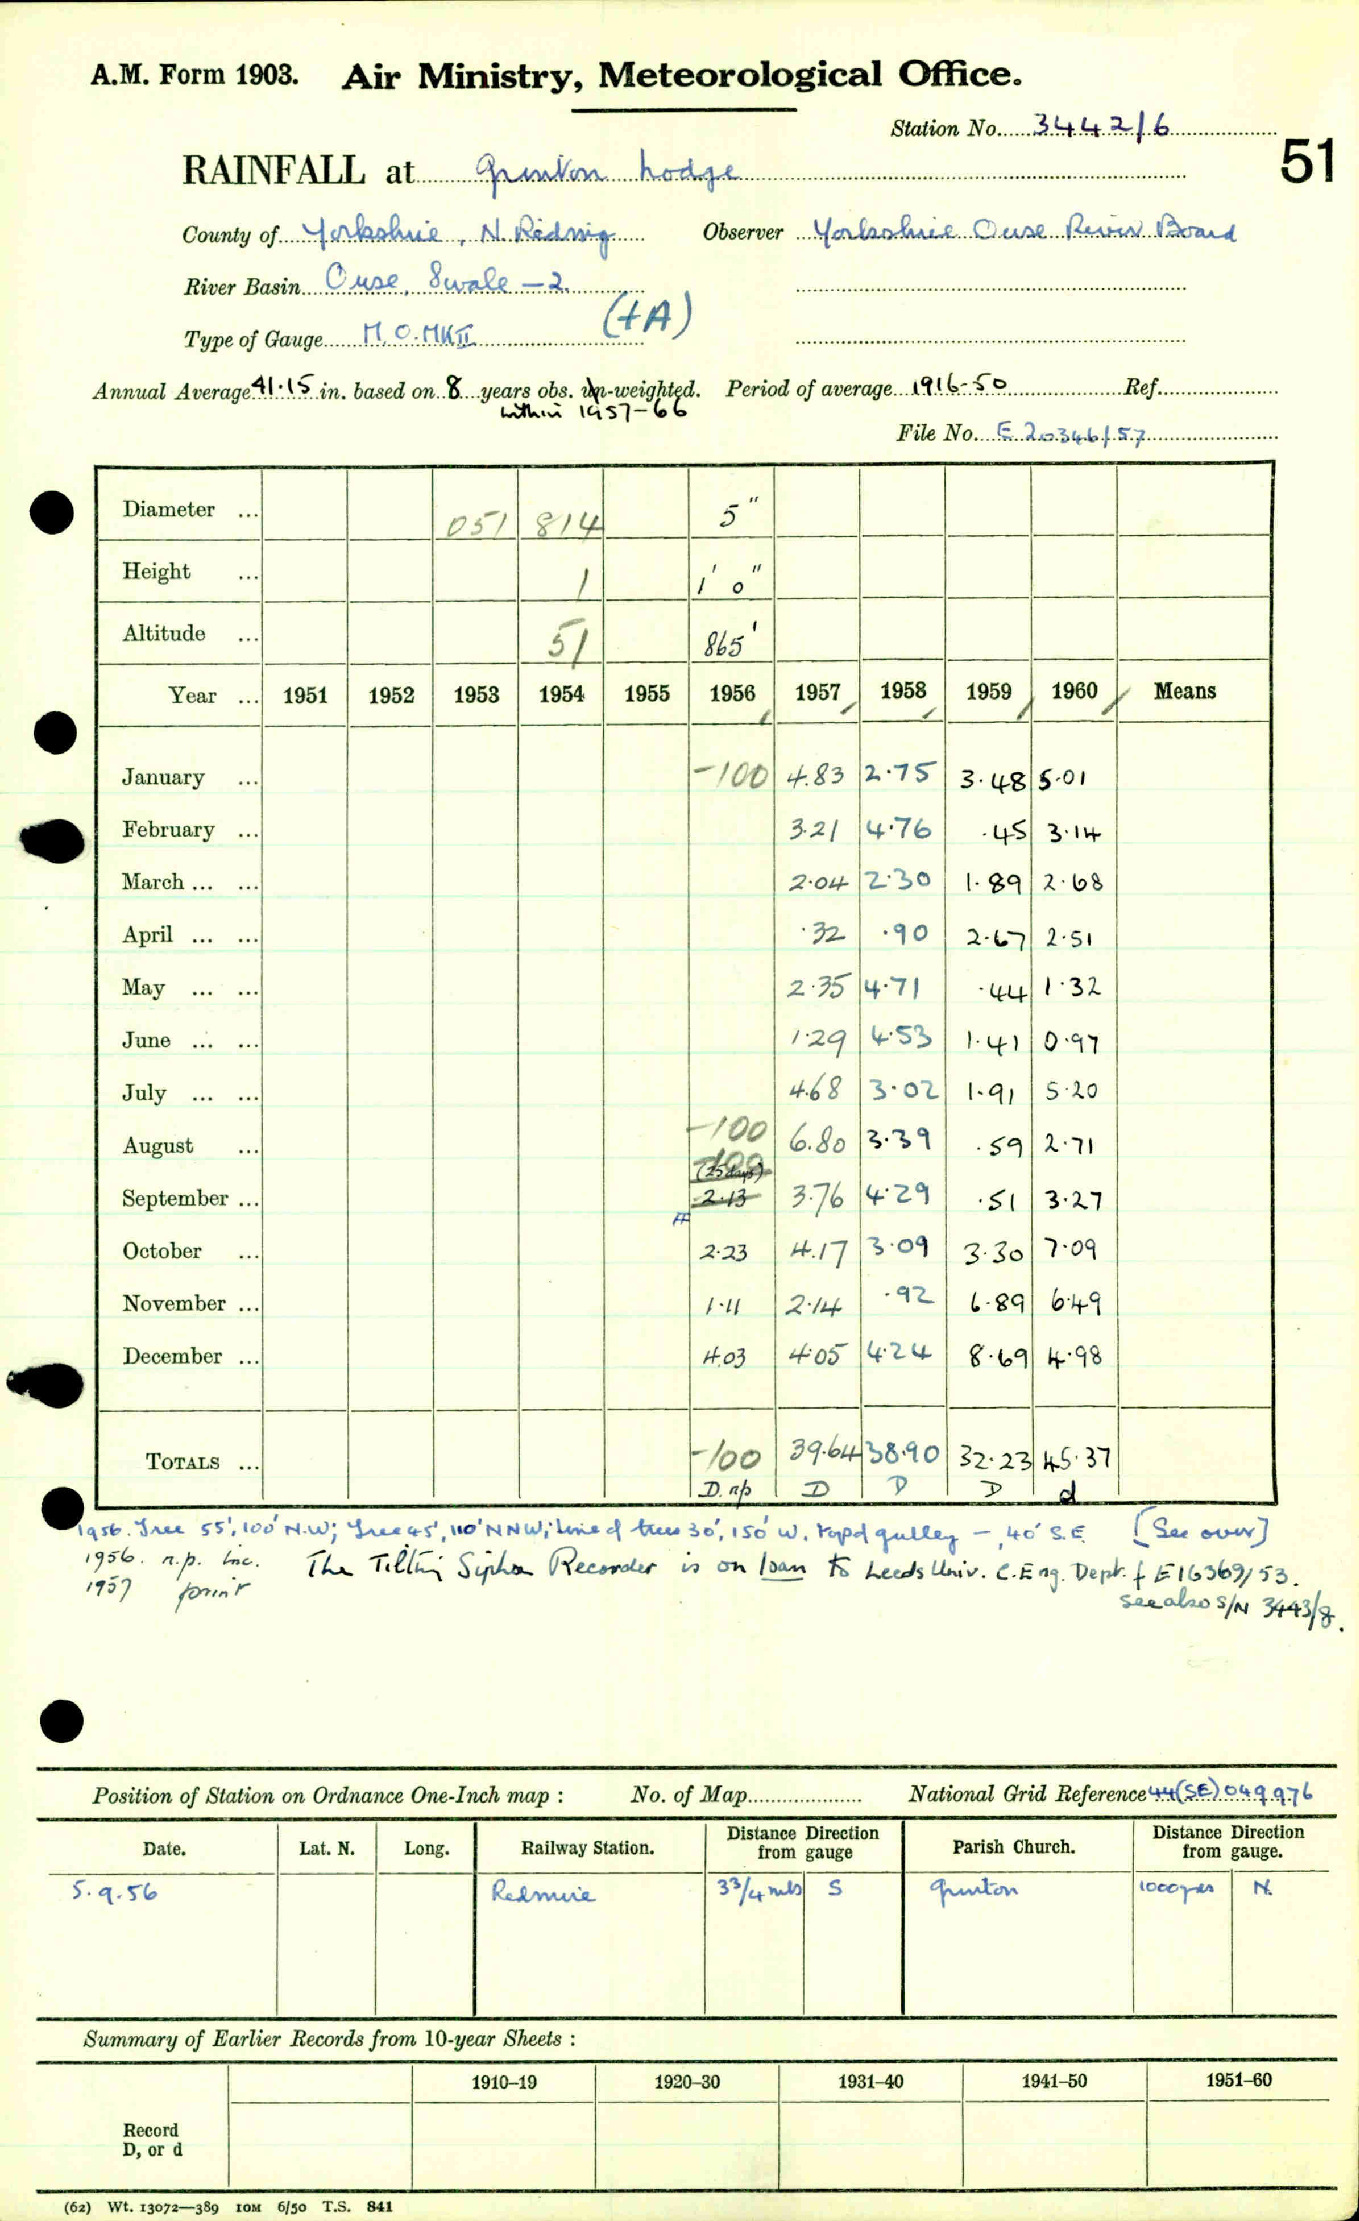 A.M. Form 1903. Air Ministry, Meteorological Office.
Station No. 3442/6
51
RAINFALL at Grinton Lodge
County of Yorkshire, N. Riding Observer Yorkshire Ouse River Board
River Basin Ouse, Swale - 2.
(+A)
Type of Gauge M.O. MK II
Annual Average 41.15 in. based on 8 years obs. un-weighted. Period of average 1916-50 Ref.
within 1957-66
File No. E 20346/57
Diameter ... 051 814 5"
Height ... 1 1' 0"
Altitude ... 51 865'
Year ... 1951 1952 1953 1954 1955 1956 1957 1958 1959 1960 Means
January ... -100 4.83 2.75 3.48 5.01
February ... 3.21 4.76 .45 3.14
March ... ... 2.04 2.30 1.89 2.68
April ... ... .32 .90 2.67 2.51
May ... ... 2.35 4.71 .44 1.32
June ... ... 1.29 4.53 1.41 0.97
July ... ... 4.68 3.02 1.91 5.20
August ... -100 6.80 3.39 .59 2.71
-100
(25 days)
September ... 2.13 3.76 4.29 .51 3.27
October ... 2.23 4.17 3.09 3.30 7.09
November ... 1.11 2.14 .92 6.89 6.49
December ... 4.03 4.05 4.24 8.69 4.98
TOTALS ... -100 39.64 38.90 32.23 45.37
D. np D D D d
1956. Tree 55', 100' N.W; Tree 45', 110' NNW; Line of trees 30', 150' W. gulley -, 40' S.E. [See over]
1956. n.p. inc. The Tilting Siphon Recorder is on loan to Leeds Univ. C. Eng. Dept. f E16369/53.
1957 print see also S/N 3443/8.
Position of Station on Ordnance One-Inch map : No. of Map National Grid Reference 44(SE)049976
Date. Lat. N. Long. Railway Station. Distance from Direction gauge Parish Church. Distance from Direction gauge.
5.9.56 Redmire 3 3/4 mls S Grinton 1000 yds N.
Summary of Earlier Records from 10-year Sheets :
1910-19 1920-30 1931-40 1941-50 1951-60
Record
D, or d
(62) Wt. 13072—389 10M 6/50 T.S. 841